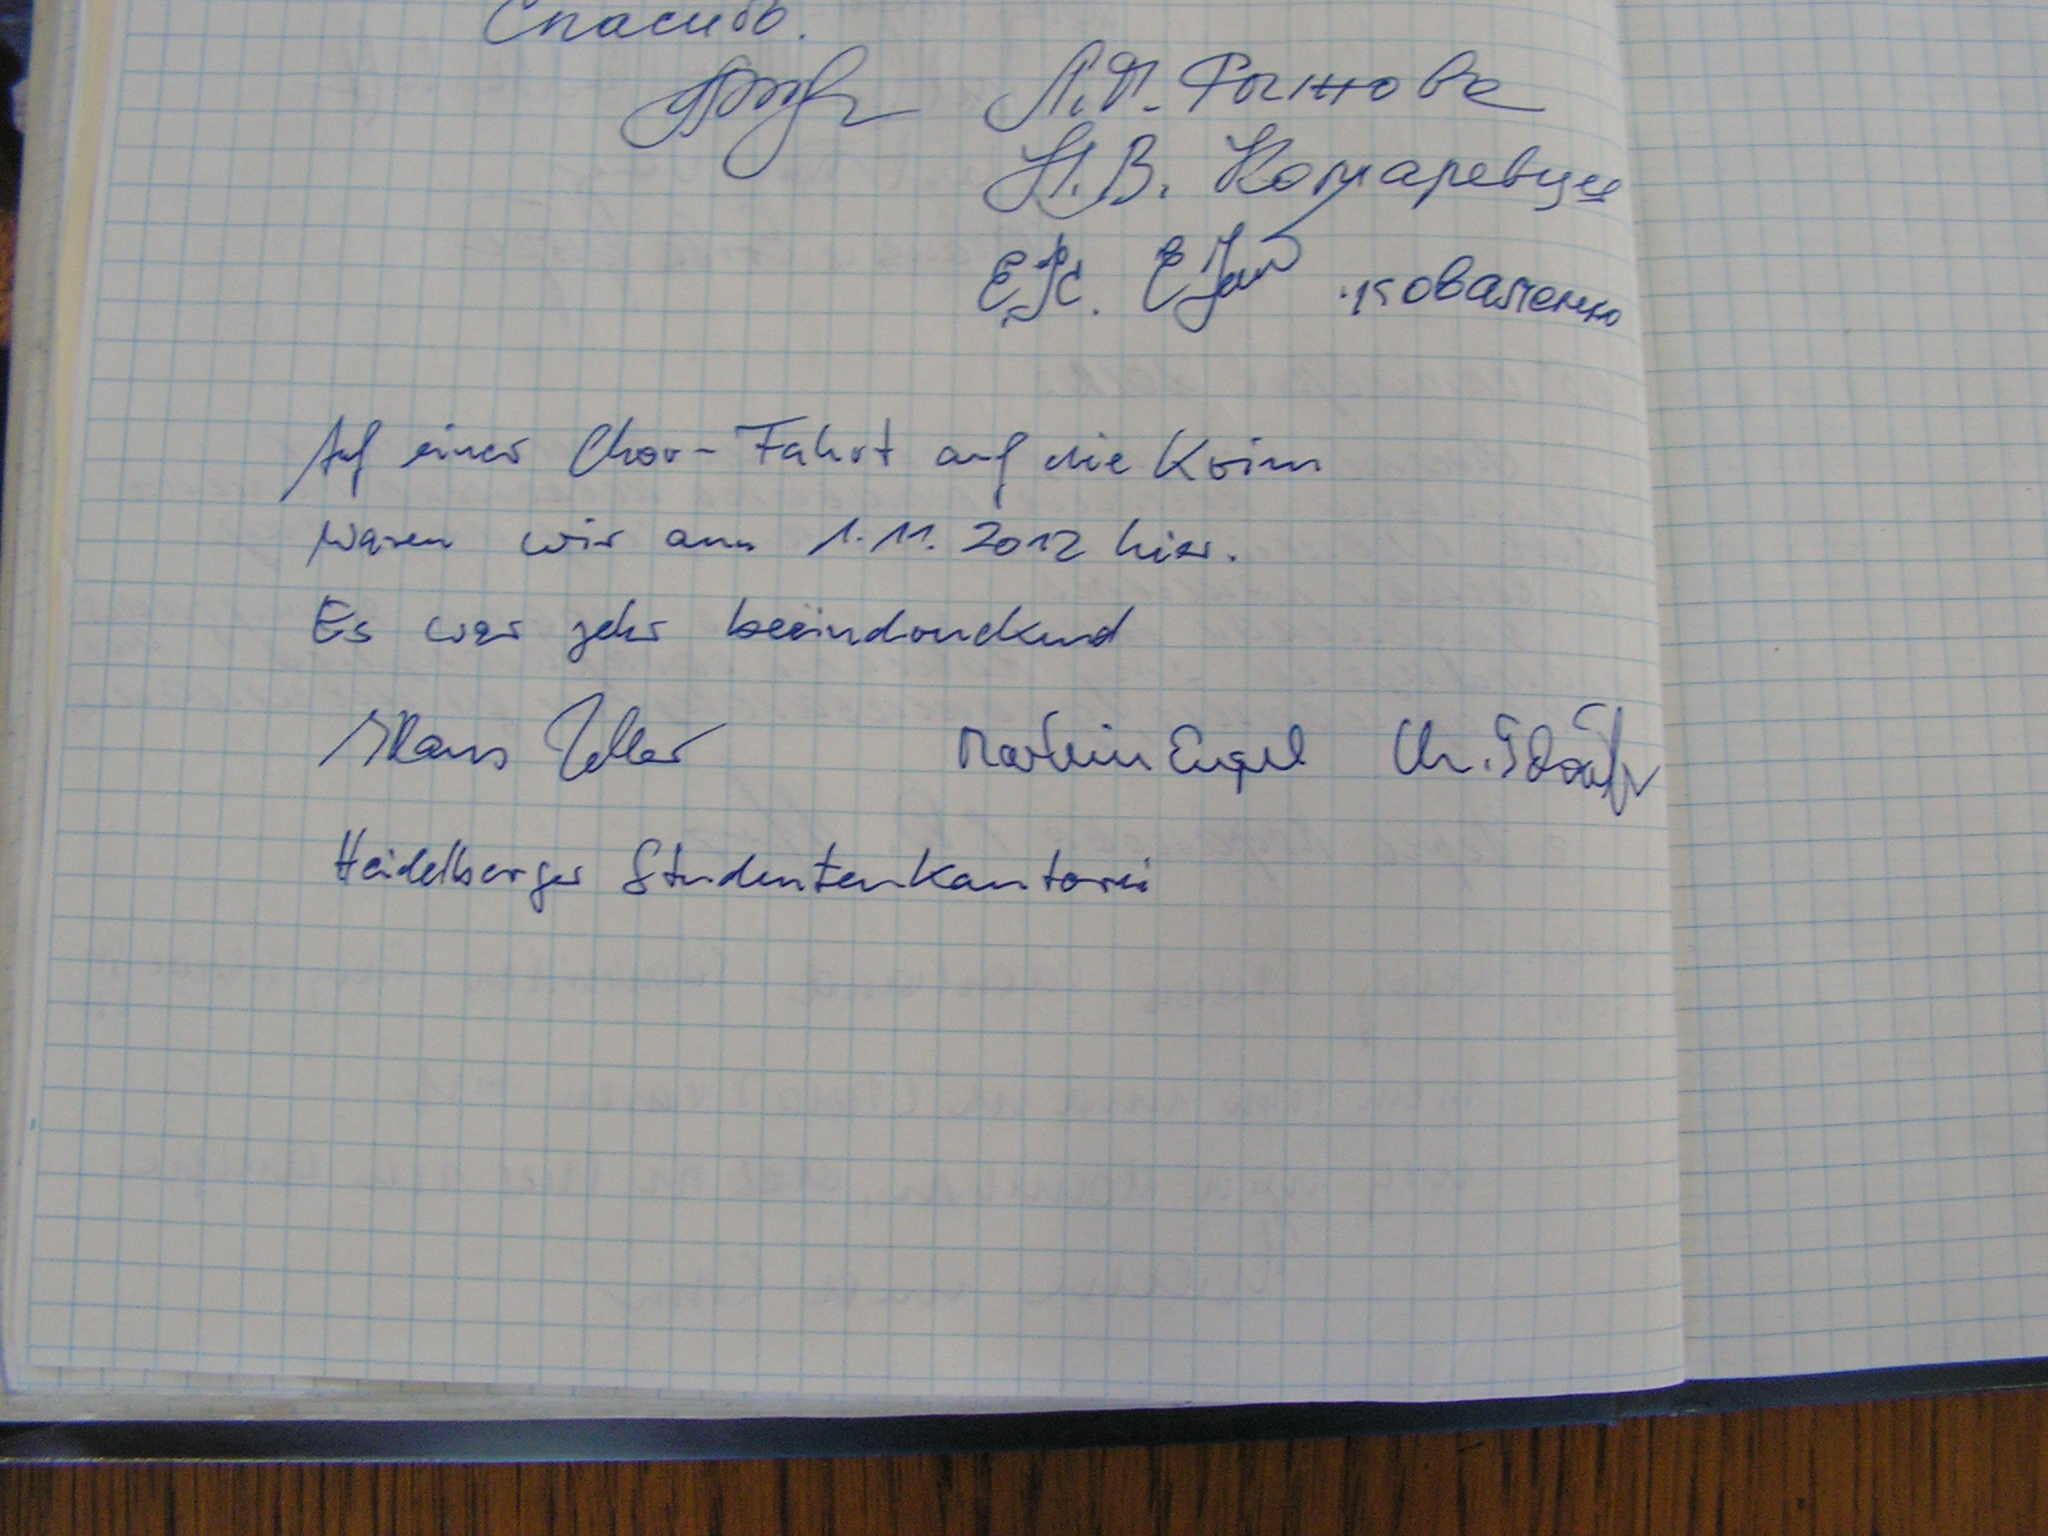 Спасибо.
Л.П. Рыжова
Н.В. Комаревцев
Е.К. Коваленко
Auf einer Chor-Fahrt auf die Krim
waren wir am 1.11.2012 hier.
Es war sehr beeindruckend
Klaus Zeller Martin Engel Chr.
Heidelberger Studentenkantorei